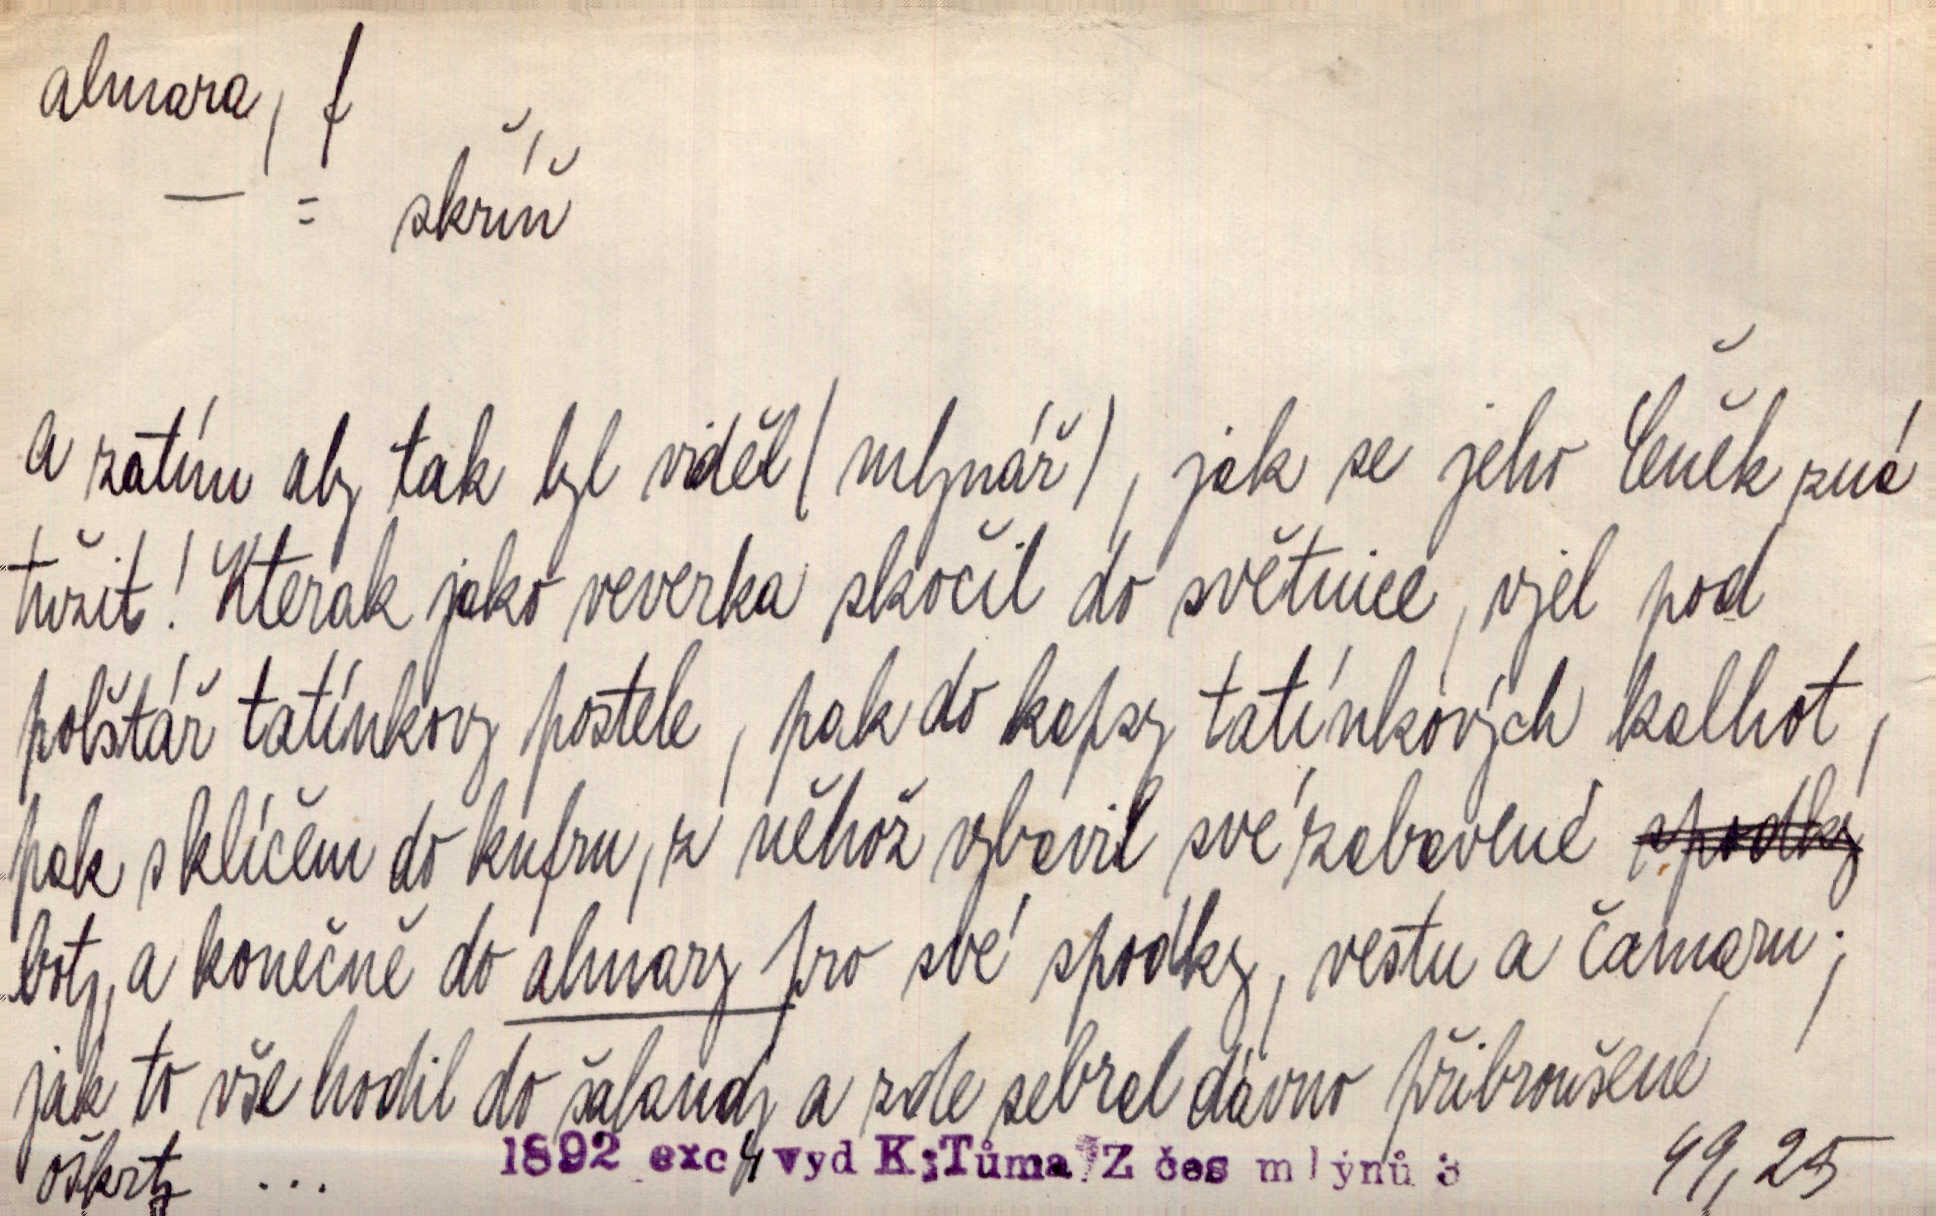 almara, f
— = skříň
A zatím aby tak byl viděl (mlynář), jak se jeho Čeněk zná
tužit! Kterak jako veverka skočil do světnice, vjel pod
polštář tatínkovy postele, pak do kapsy tatínkových kalhot,
pak s klíčem do kufru, z něhož vybavil své zabavené spodky
boty, a konečně do almary pro své spodky, vestu a čamaru;
jak to vše hodil do šalandy a zde sebral dávno přibroušené
oškrty ...
1892 exc 4 vyd K.Tůma Z čes mlýnů 3
49, 25